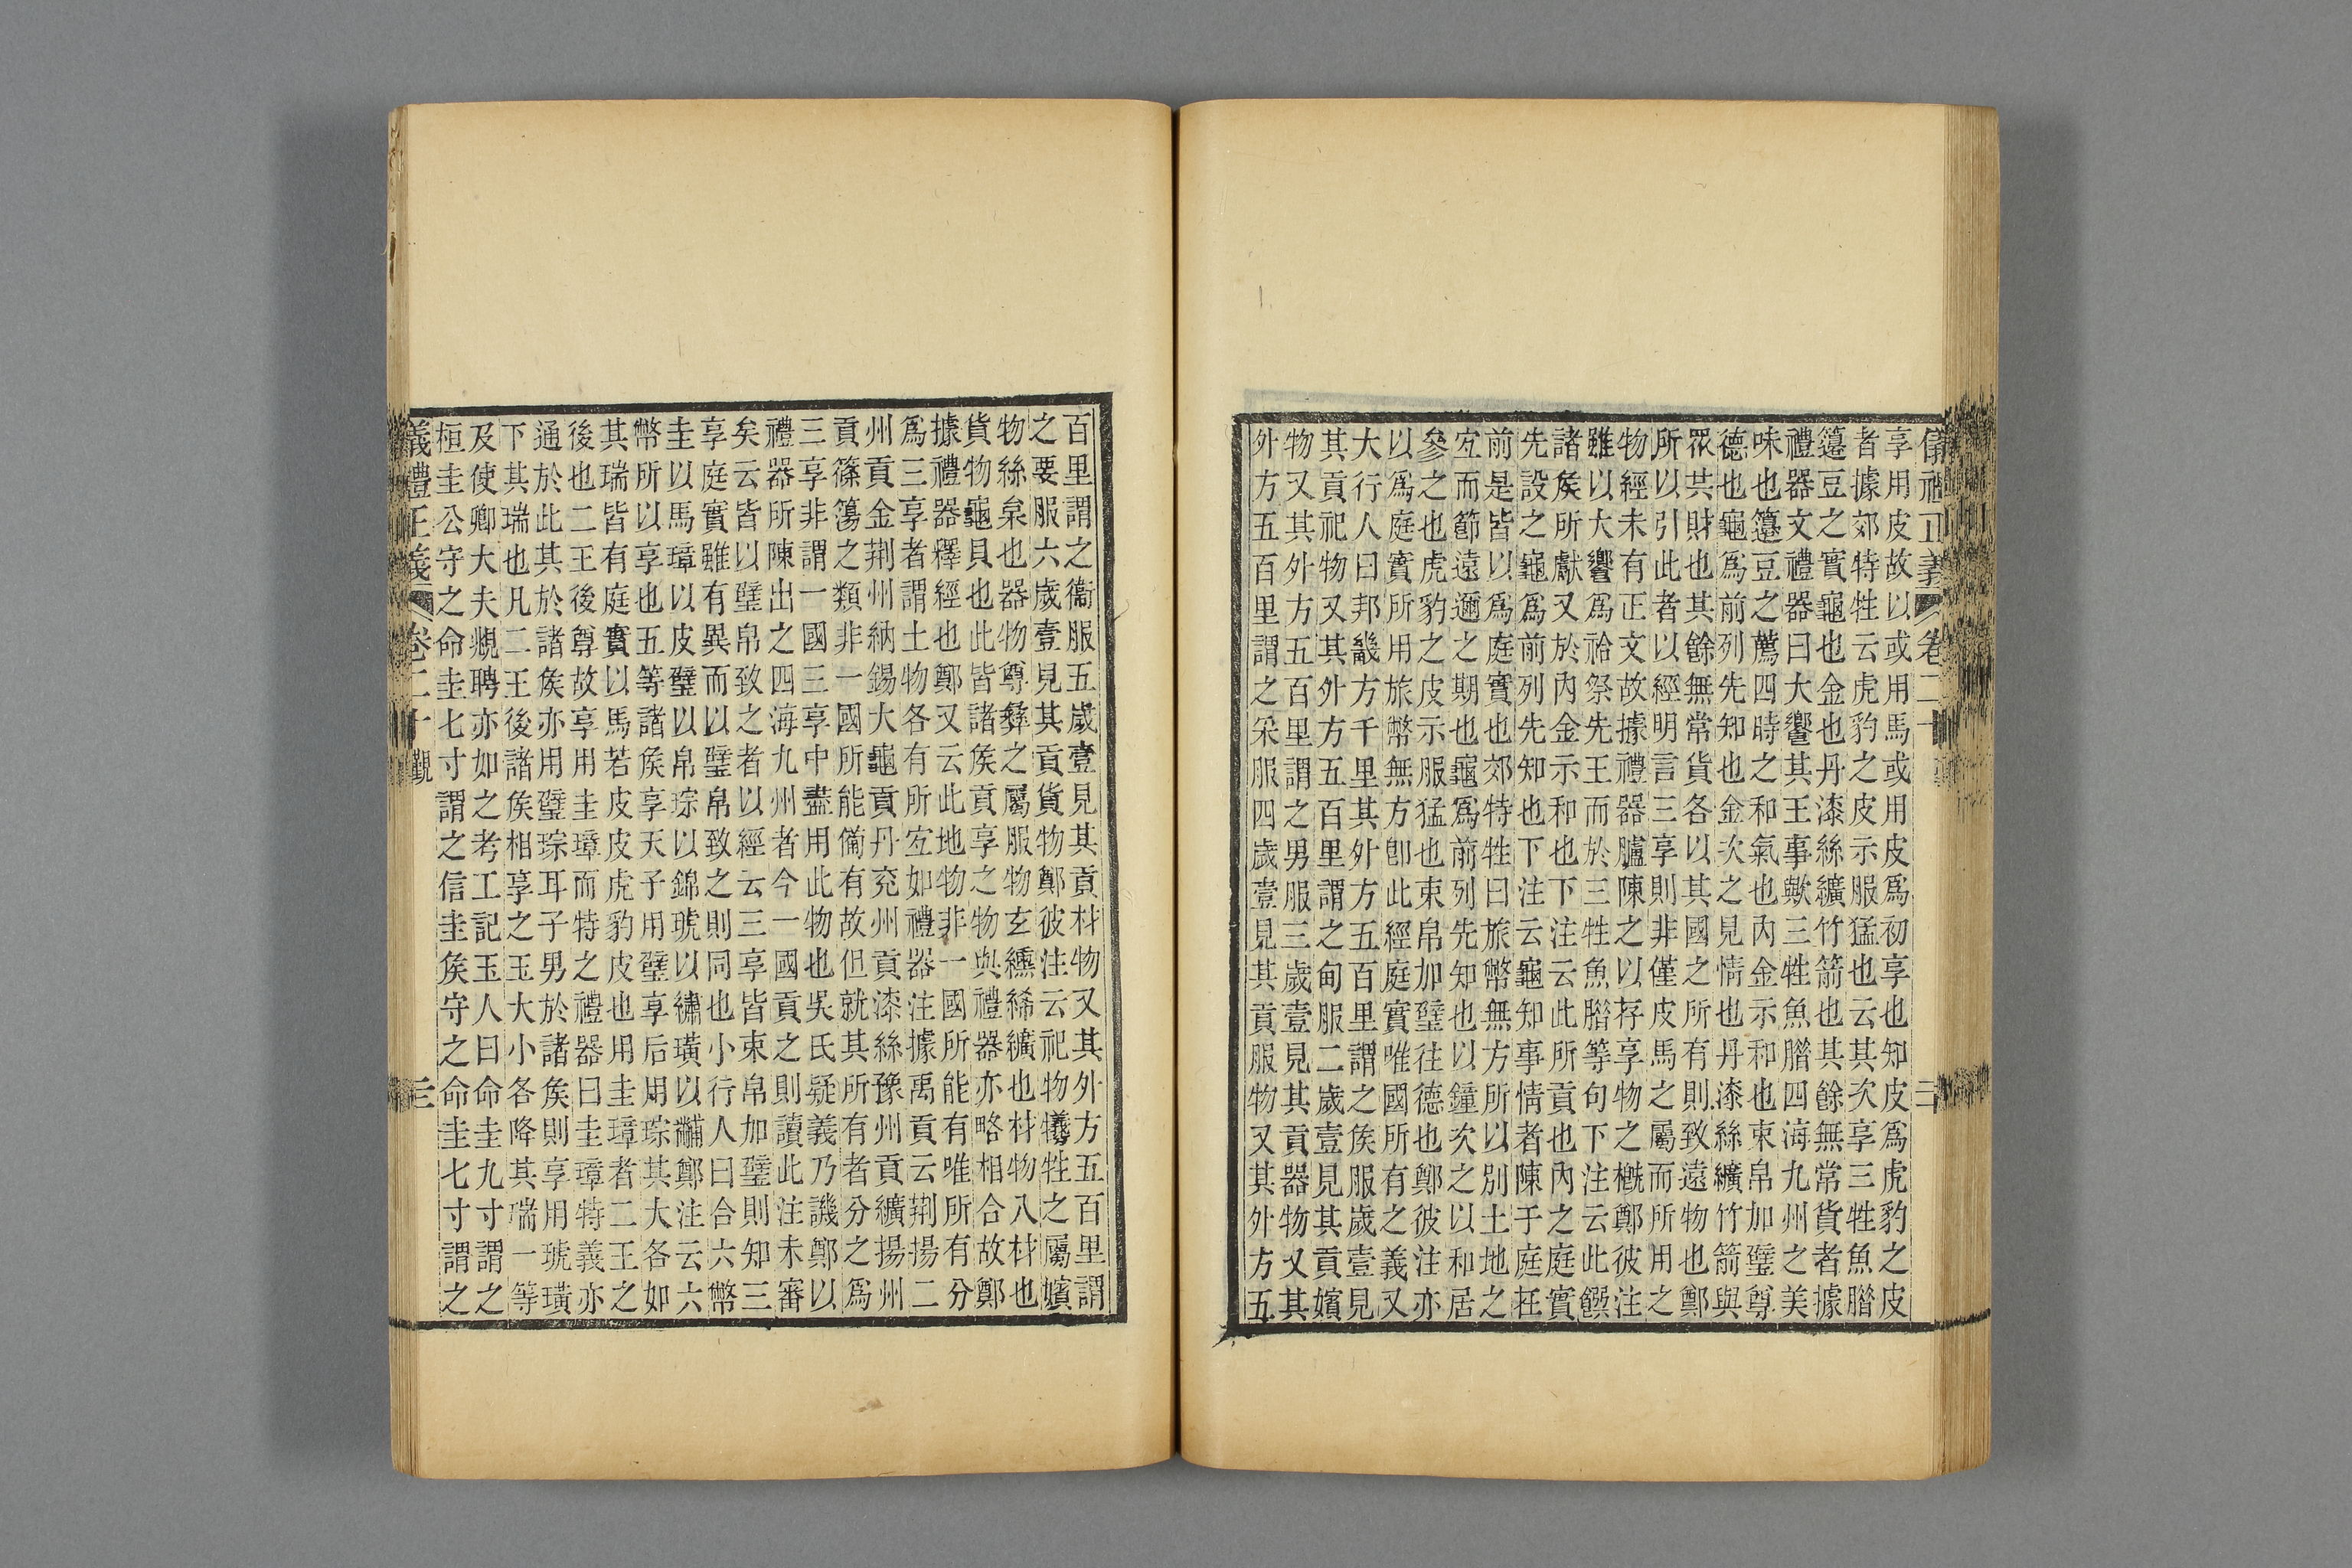 儀禮正義 卷二十 三
享用皮故以或用馬或用皮爲初享也知皮爲虎豹之皮
者據郊特牲云虎豹之皮示服猛也云其次享三牲魚腊
籩豆之實龜也金也丹漆絲纊竹箭也其餘無常貨者據
禮器文禮器曰大饗其王事歟三牲魚腊四海九州之美
味也籩豆之薦四時之和氣也內金示和也束帛加璧尊
德也龜爲前列先知也金次之見情也丹漆絲纊竹箭與
眾共財也其餘無常貨各以其國之所有則致遠物也鄭
所以引此者以經明言三享則非僅皮馬之屬而所用之
物經未有正文故據禮器臚陳之以存享物之槪鄭彼注
雖以大饗爲祫祭先王而於三牲魚腊等句下注云此饌
諸矦所獻又於內金示和也下注云此所貢也內之庭實
先設之龜爲前列先知也下注云龜知事情者陳于庭在
前是皆以爲庭實也郊特牲曰旅幣無方所以別土地之
宐而節遠邇之期也龜爲前列先知也以鐘次之以和居
參之也虎豹之皮示服猛也束帛加璧往德也鄭彼注亦
以爲庭實所用旅幣無方卽此經庭實唯國所有之義又
大行人曰邦畿方千里其外方五百里謂之矦服歲壹見
其貢祀物又其外方五百里謂之甸服二歲壹見其貢嬪
物又其外方五百里謂之男服三歲壹見其貢器物又其
外方五百里謂之采服四歲壹見其貢服物又其外方五
百里謂之衞服五歲壹見其貢材物又其外方五百里謂
之要服六歲壹見其貢貨物鄭彼注云祀物犧牲之屬嬪
物絲枲也器物尊彝之屬服物玄纁絺纊也材物八材也
貨物龜貝也此皆諸矦貢享之物與禮器亦略相合故鄭
據禮器釋經也鄭又云此地物非一國所能有唯所有分
爲三享者謂土物各有所宐如禮器注據禹貢云荆揚二
州貢金荆州納錫大龜貢丹兖州貢漆絲豫州貢纊揚州
貢篠簜之類非一國所能備有故但就其所有者分之爲
三享非謂一國三享中盡用此物也吳氏疑義乃譏鄭以
禮器所陳出之四海九州者今一國貢之則讀此注未審
矣云皆以璧帛致之者以經云三享皆束帛加璧則知三
享庭實雖有異而以璧帛致之則同也小行人曰合六幣
圭以馬璋以皮璧以帛琮以錦琥以繡璜以黼鄭注云六
幣所以享也五等諸矦享天子用璧享后用琮其大各如
其瑞皆有庭實以馬若皮皮虎豹皮也用圭璋者二王之
後也二王後尊故享用圭璋而特之禮器曰圭璋特義亦
通於此其於諸矦亦用璧琮耳子男於諸矦則享用琥璜
下其瑞也凡二王後諸矦相享之玉大小各降其瑞一等
及使卿大夫覜聘亦如之考工記玉人曰命圭九寸謂之
桓圭公守之命圭七寸謂之信圭矦守之命圭七寸謂之
義禮正義 卷二十 覲 三